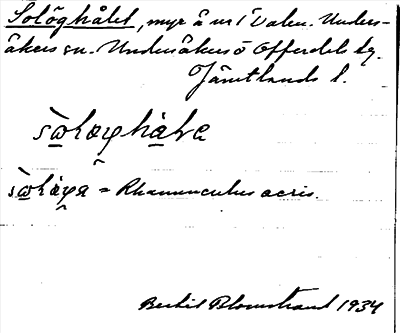 Solöghålet, myr å n i Valen. Unders-
åkers sn. Undersåkers o Offerdals tg.
Jämtlands l.
= Rhanunculus acris.
Bertil Blomstrand 1934